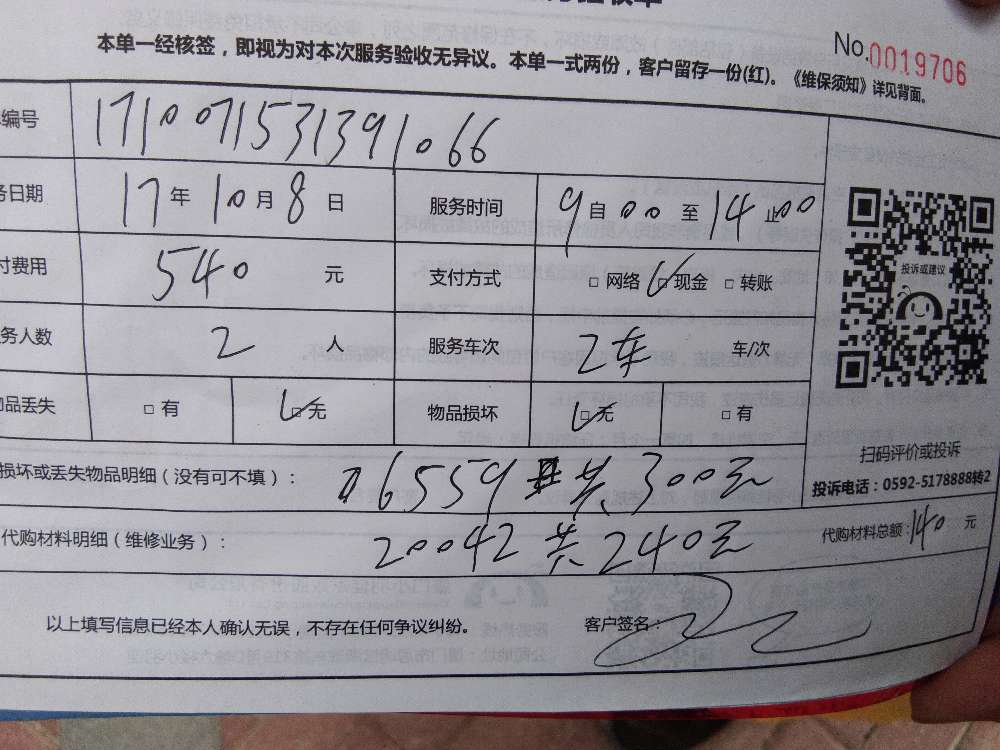 本单一经核签，即视为对本次服务验收无异议。本单一式两份，客户留存一份(红)。《维保须知》详见背面。
No.0019706
编号 171007153139 1066
务日期 17年10月8日 服务时间 9自00至14止00
付费用 540 元 支付方式 □ 网络 □ 现金 □ 转账
务人数 2 人 服务车次 2车 车/次
物品丢失 □ 有 □ 无 物品损坏 □ 无 □ 有
投诉或建议
扫码评价或投诉
投诉电话：0592-5178888转2
损坏或丢失物品明细（没有可不填）： 6559 共300元
代购材料明细（维修业务）： 20042 共240元
代购材料总额：140 元
以上填写信息已经本人确认无误，不存在任何争议纠纷。 客户签名：